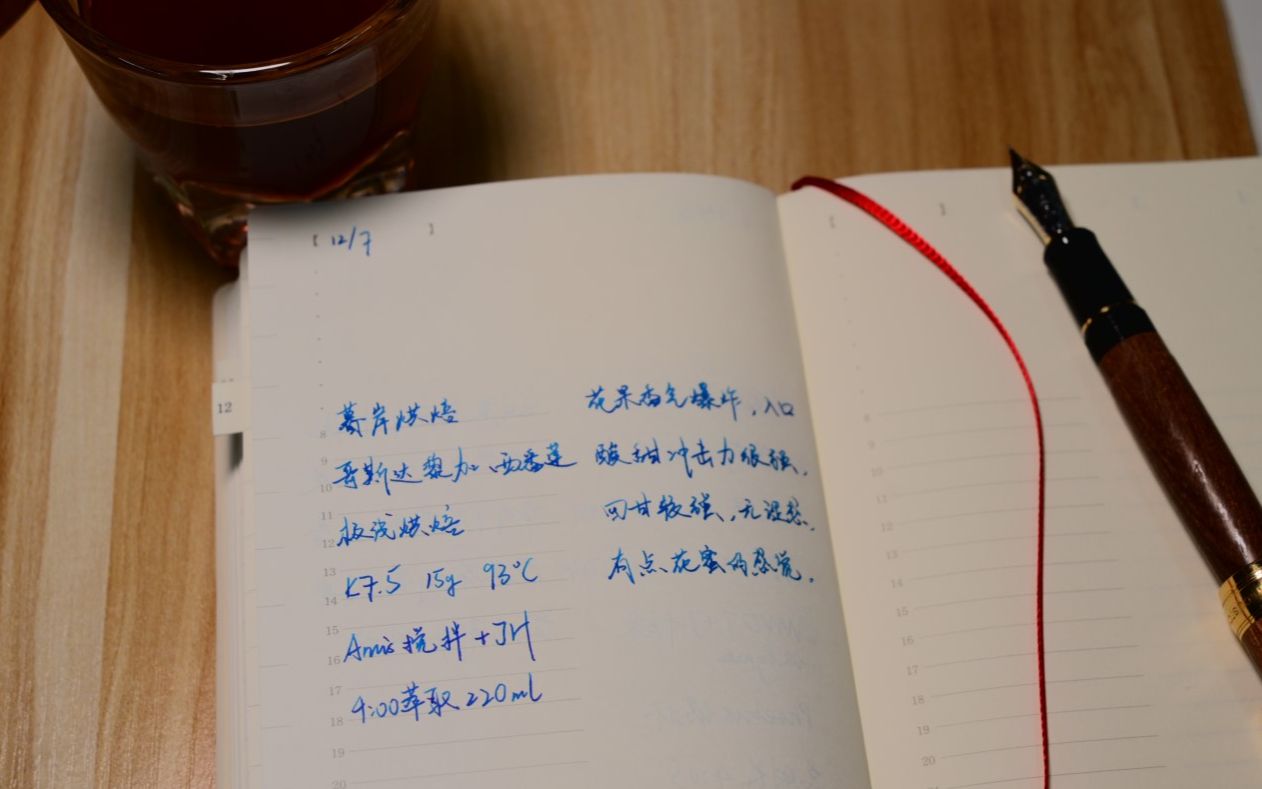 12/7
12
暮岸烘焙
哥斯达黎加、西番莲
极浅烘焙
K7.5 15g 93°C
Amis搅拌+JH
4:00萃取220ml
花果香气爆炸,入口
酸甜冲击力很强,
回甘较强,无涩感,
有点花蜜的感觉.
8
9
10
11
12
13
14
15
16
17
18
19
20
11
12
13
14
15
16
17
18
19
20